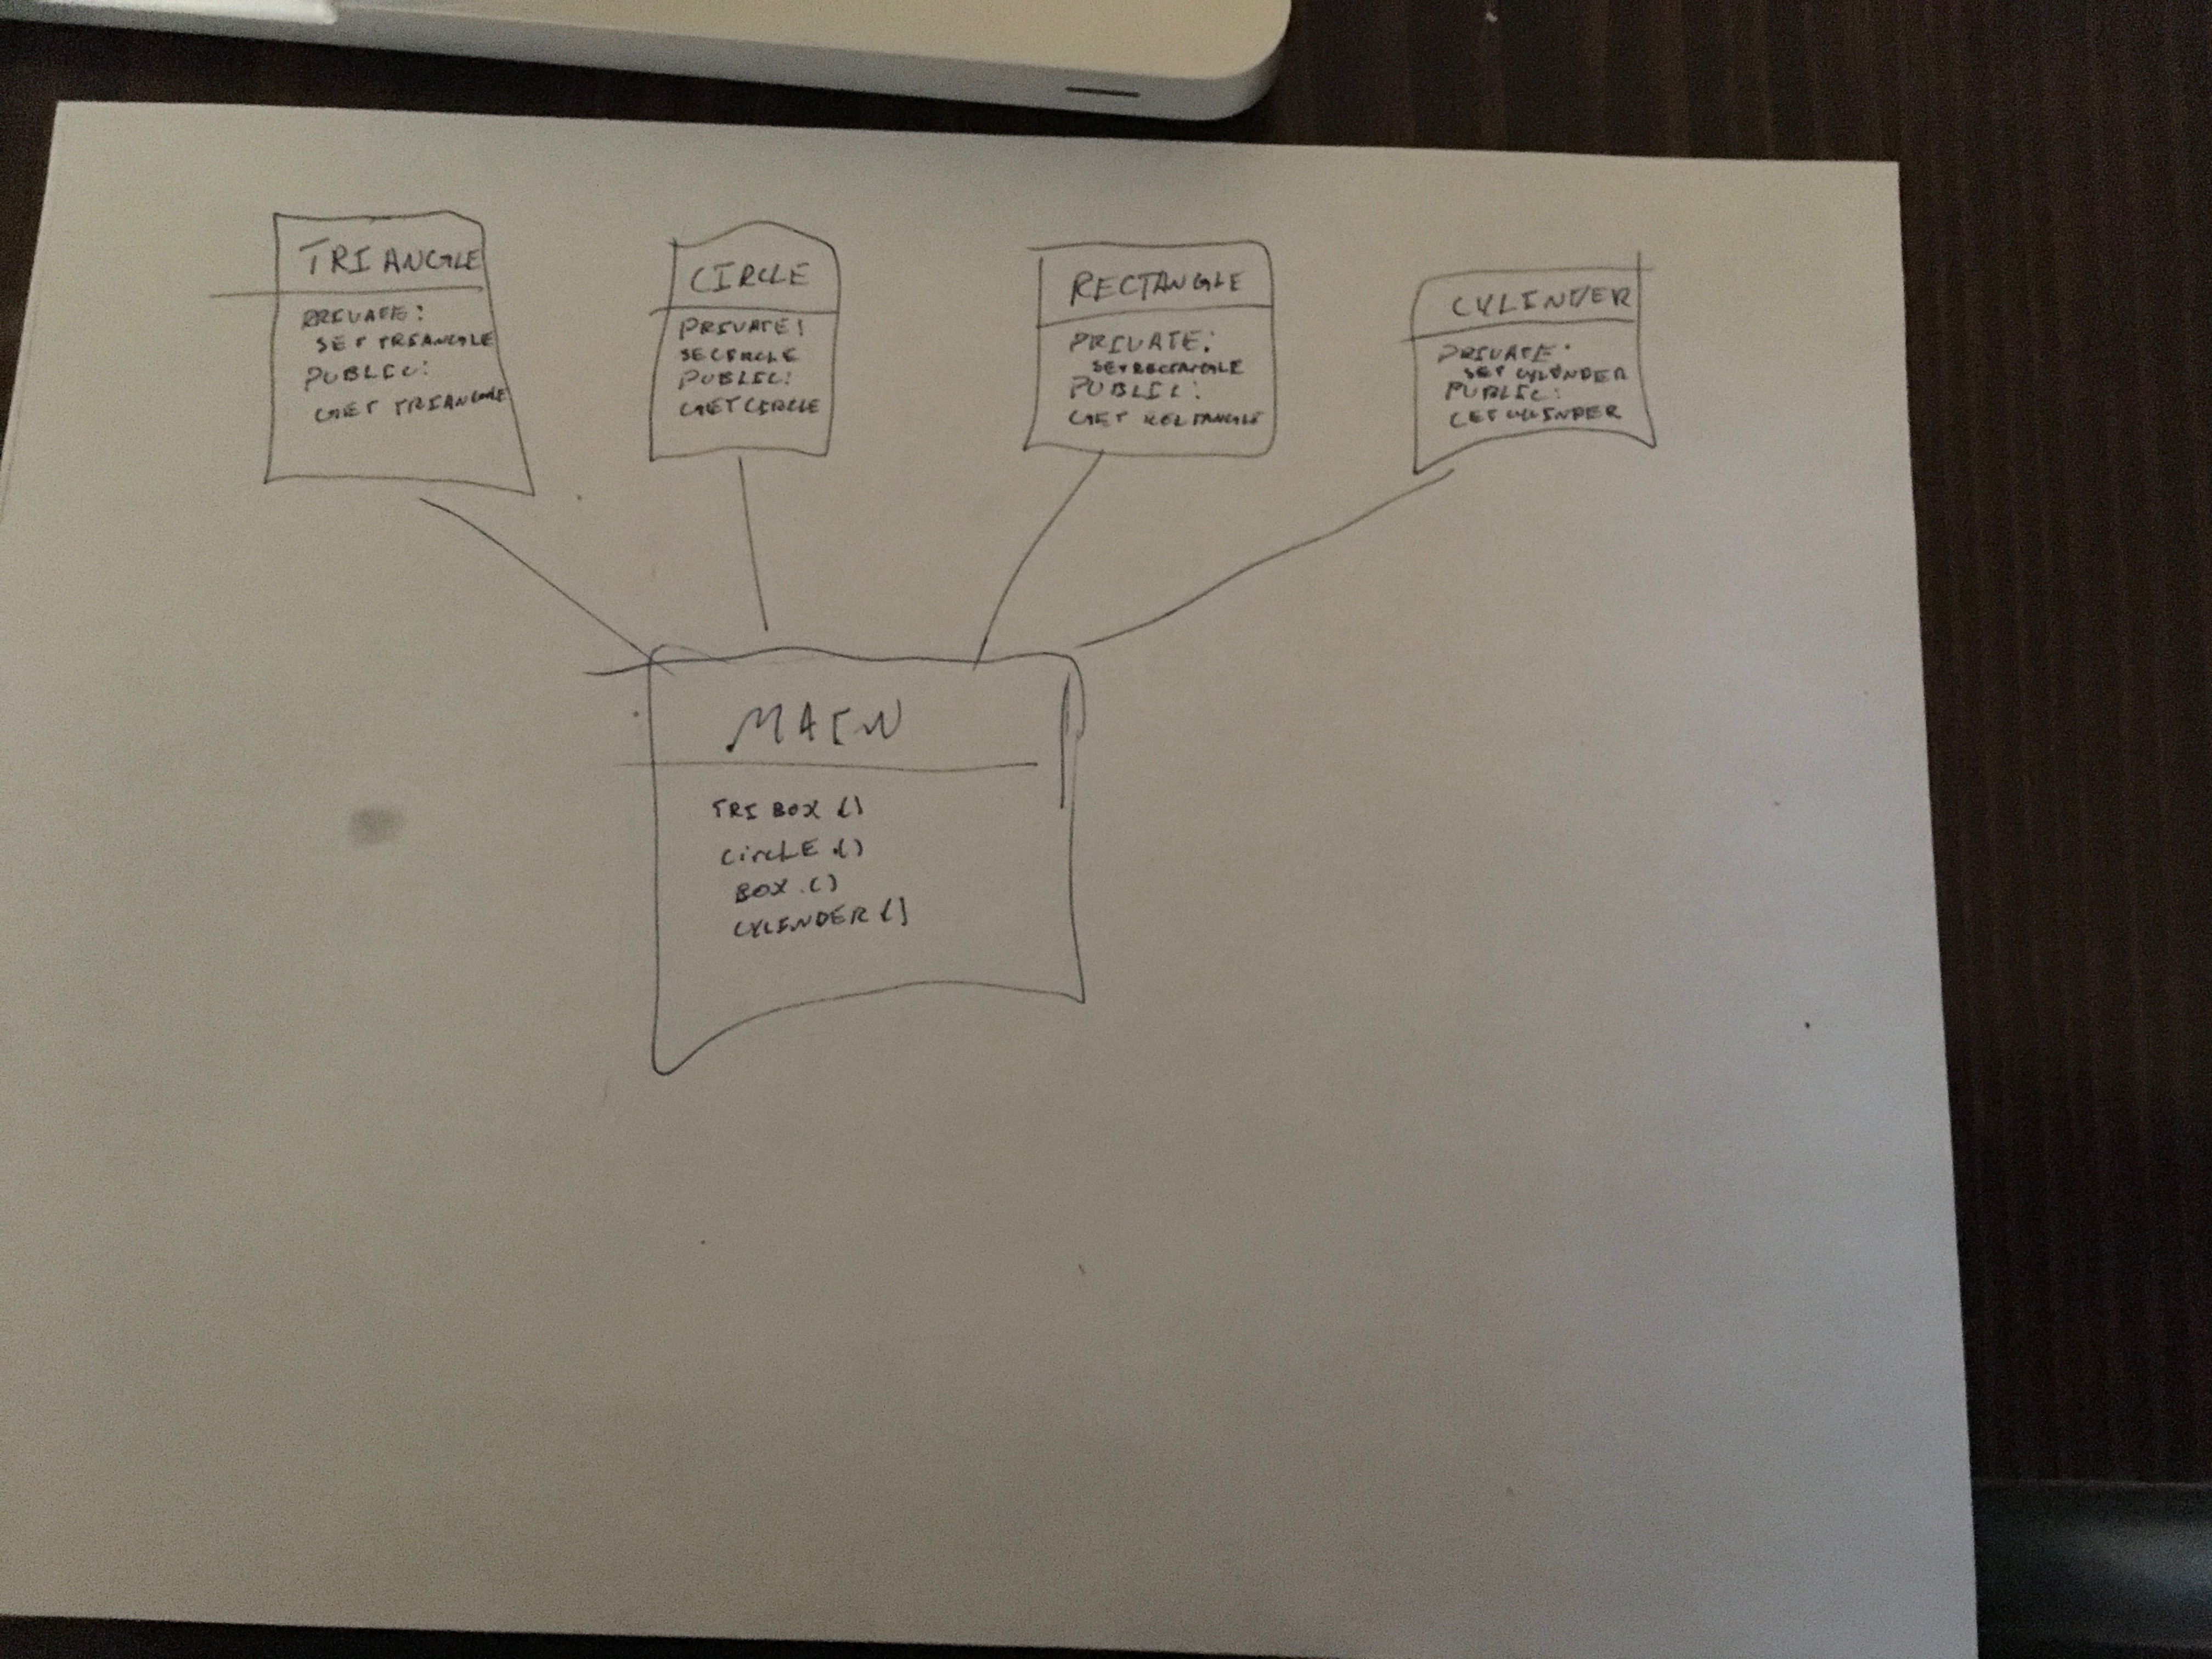 TRIANGLE
PRIVATE:
SET TRIANGLE
PUBLIC:
GET TRIANGLE
CIRCLE
PRIVATE:
SECIRCLE
PUBLIC:
GETCIRCLE
RECTANGLE
PRIVATE:
SETRECTANGLE
PUBLIC:
GET RECTANGLE
CYLINDER
PRIVATE:
SET CYLINDER
PUBLIC:
GETCYLINDER
MAIN
TRI BOX ()
CircLE ()
BOX ()
CYLINDER ()